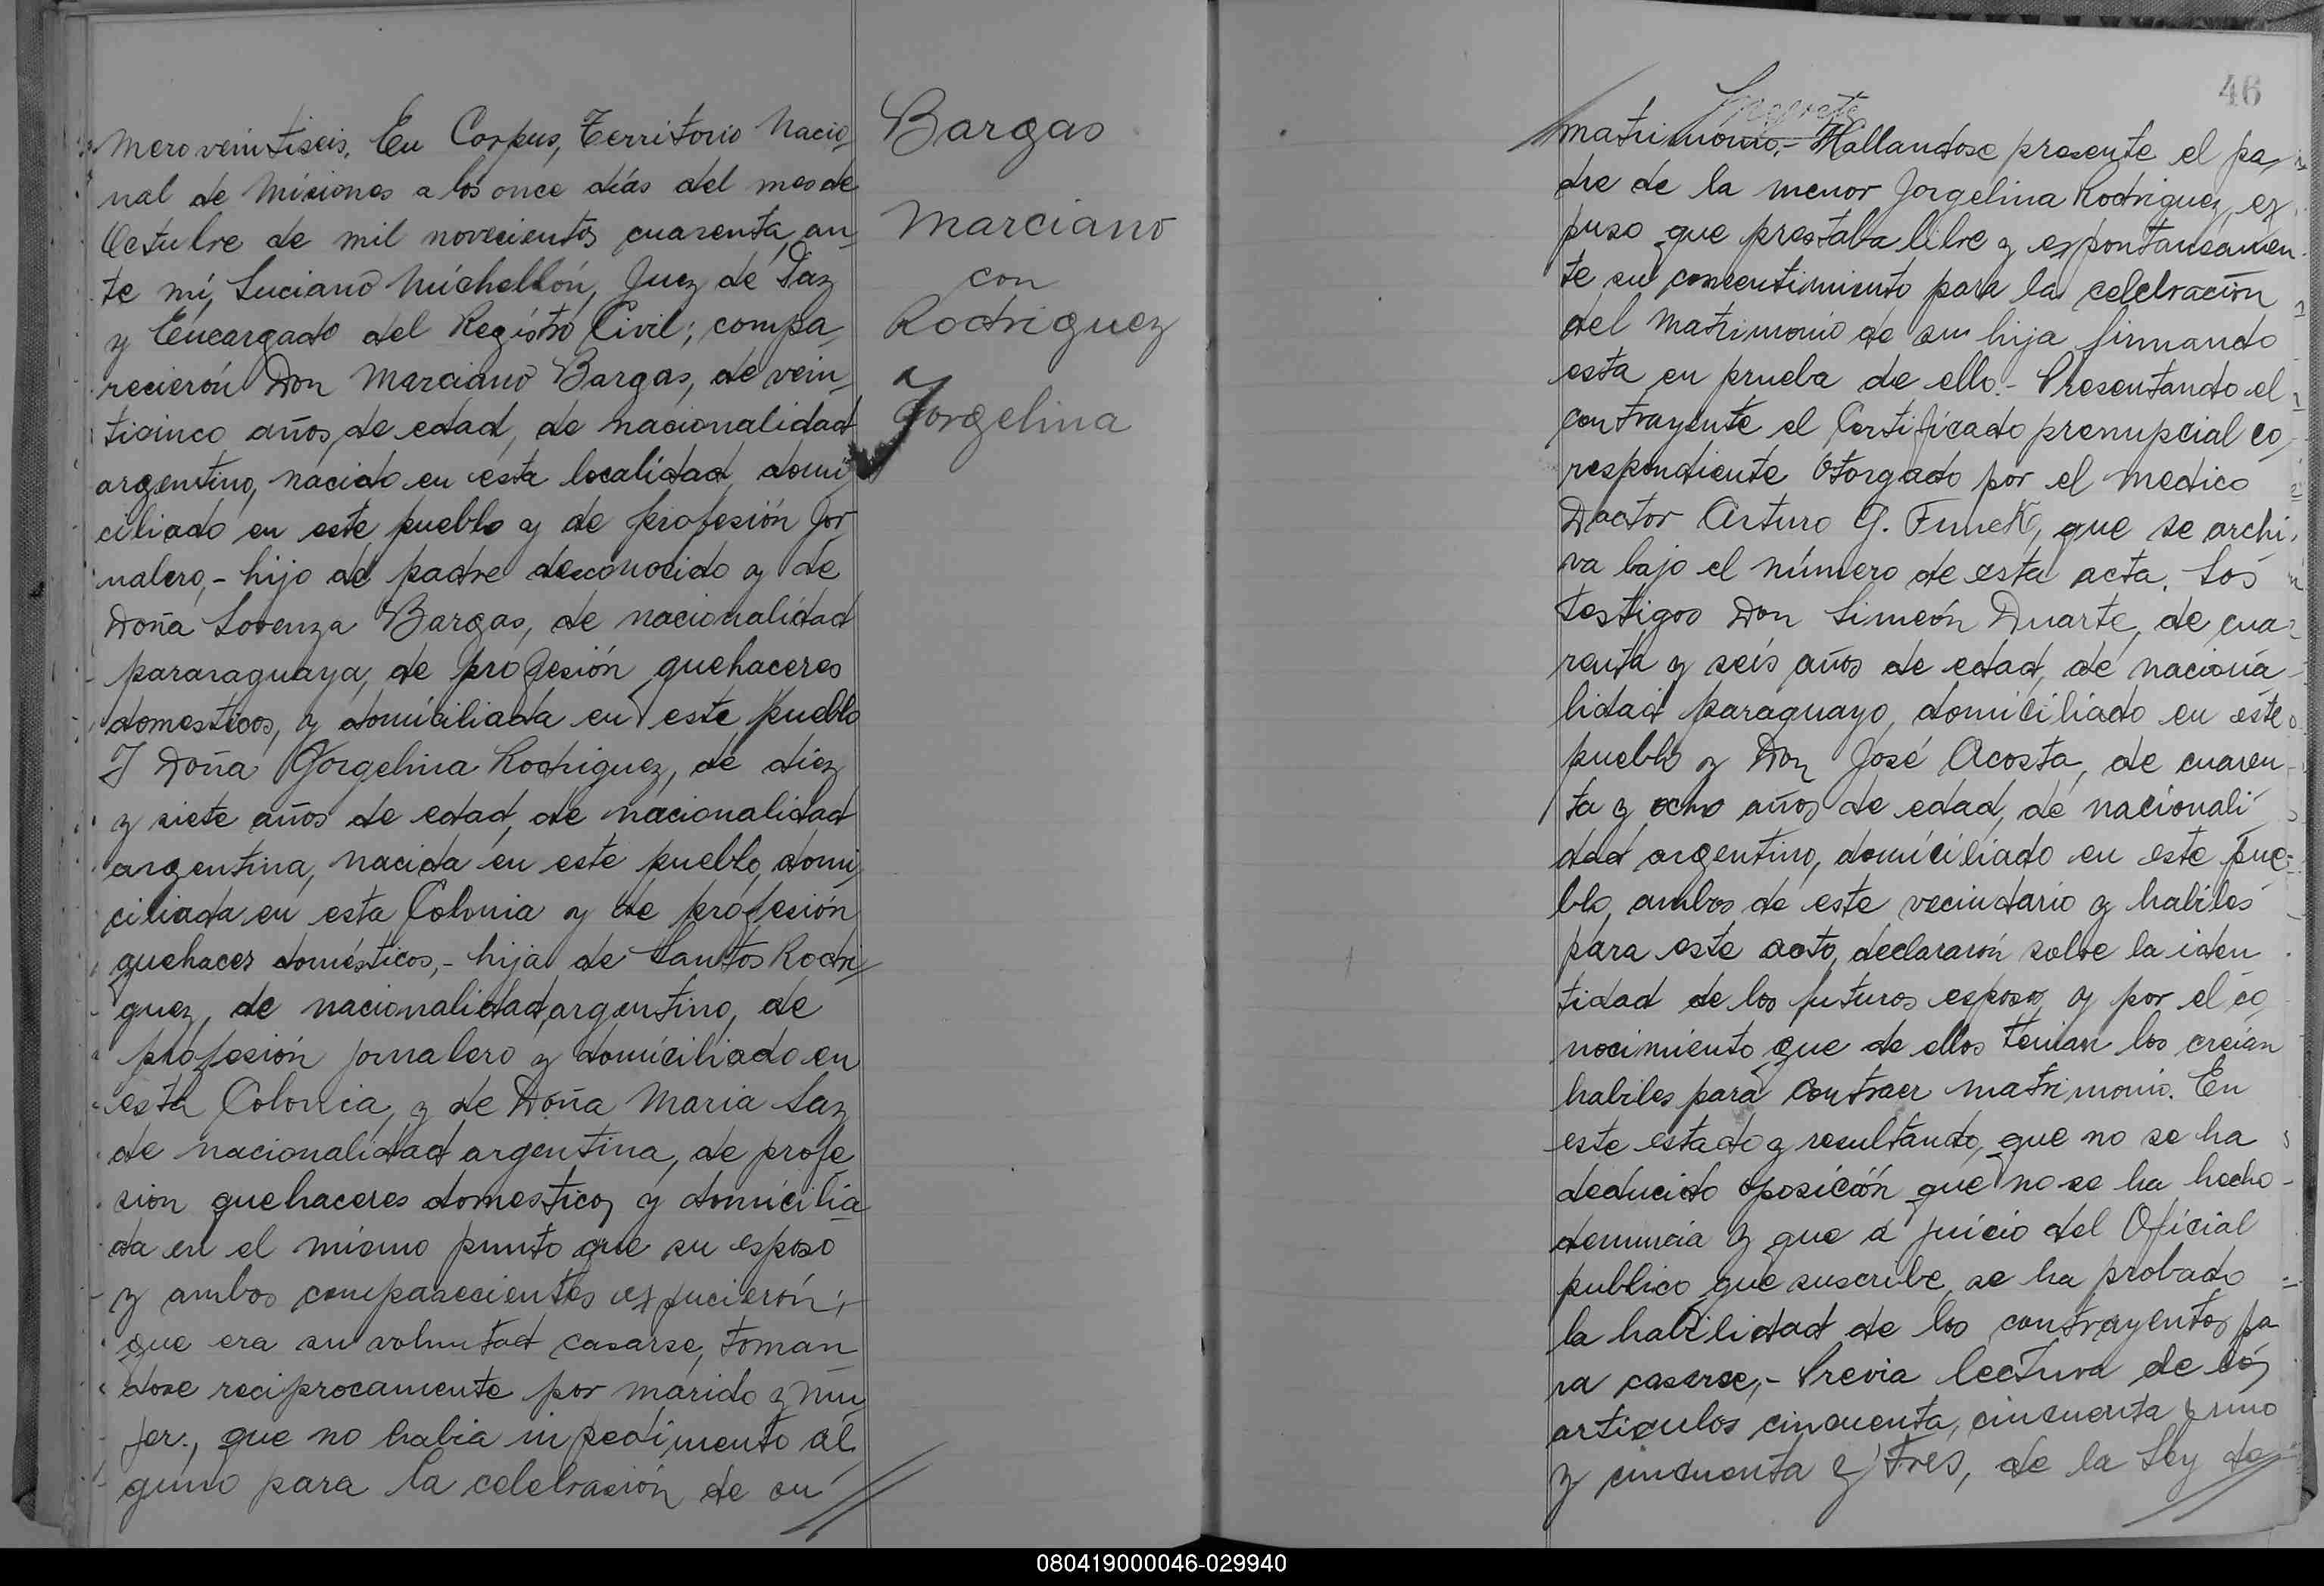 mero veintiseis. En Corpus, Territorio Nacio
nal de Misiones a los once días del mes de
Octubre de mil novecientos cuarenta, an
te mí, Luciano Michellón, Juez de Paz
y Encargado del Registro Civil; compa
recierón Don Marciano Bargas, de vein
ticinco años de edad, de nacionalidad
argentino, nacido en esta localidad, domi
ciliado en este pueblo y de profesión jor
nalero,- hijo de padre desconocido y de
Doña Lorenza Bargas, de nacionalidad
pararaguaya, de profesión quehaceres
domesticos, y domiciliada en este pueblo
Y Doña Jorgelina Rodriguez, de diez
y siete años de edad, de nacionalidad
argentina, nacida en este pueblo, domi
ciliada en esta Colonia y de profesión
quehacer domésticos,- hija de Santos Rodri
guez, de nacionalidad argentino, de
profesión jornalero y domiciliado en
esta Colonia, y de Doña Maria Laz
de nacionalidad argentina, de profe
sion quehaceres domesticos y domicilia
da en el mismo punto que su esposo
y ambos comparecientes expucierón;
que era su voluntad casarse, toman
dose reciprocamente por marido y mu
jer., que no habia inpedimento al
guno para la celebrasión de su
Bargas
Marciano
con
Rodriguez
Jorgelina
46
matrimonio.- Hallandose presente el pa
dre de la menor Jorgelina Rodriguez, ex
puso que prestaba libre y expontaneamen
te su consentimiento para la celebración
del matrimonio de su hija firmando
esta en prueba de ello.- Presentando el
contrayente el Certificado prenupcial co
respondiente otorgado por el medico
Doctor Arturo G. Funck, que se archi
va bajo el número de esta acta. Los
testigos Don Simeón Duarte, de cua
renta y seis años de edad, de naciona
lidad paraguayo, domiciliado en este
pueblo y Don José Acosta, de cuaren
ta y ocho años de edad, de nacionali
dad argentino, domiciliado en este pue
blo, ambos de este vecindario y habiles
para este acto, declararón sobre la iden
tidad de los futuros esposos y por el co
nocimiento que de ellos tenian los creían
habiles para contraer matrimonio. En
este estado y resultando, que no se ha
deducido oposición que no se ha hecho
denuncia y que a juicio del Oficial
publico que suscribe, se ha probado
la habilidad de los contrayentes pa
ra casarse,- Previa lectura de los
articulos cincuenta, cincuenta y uno
y cincuenta y tres, de la Ley de
080419000046-029940